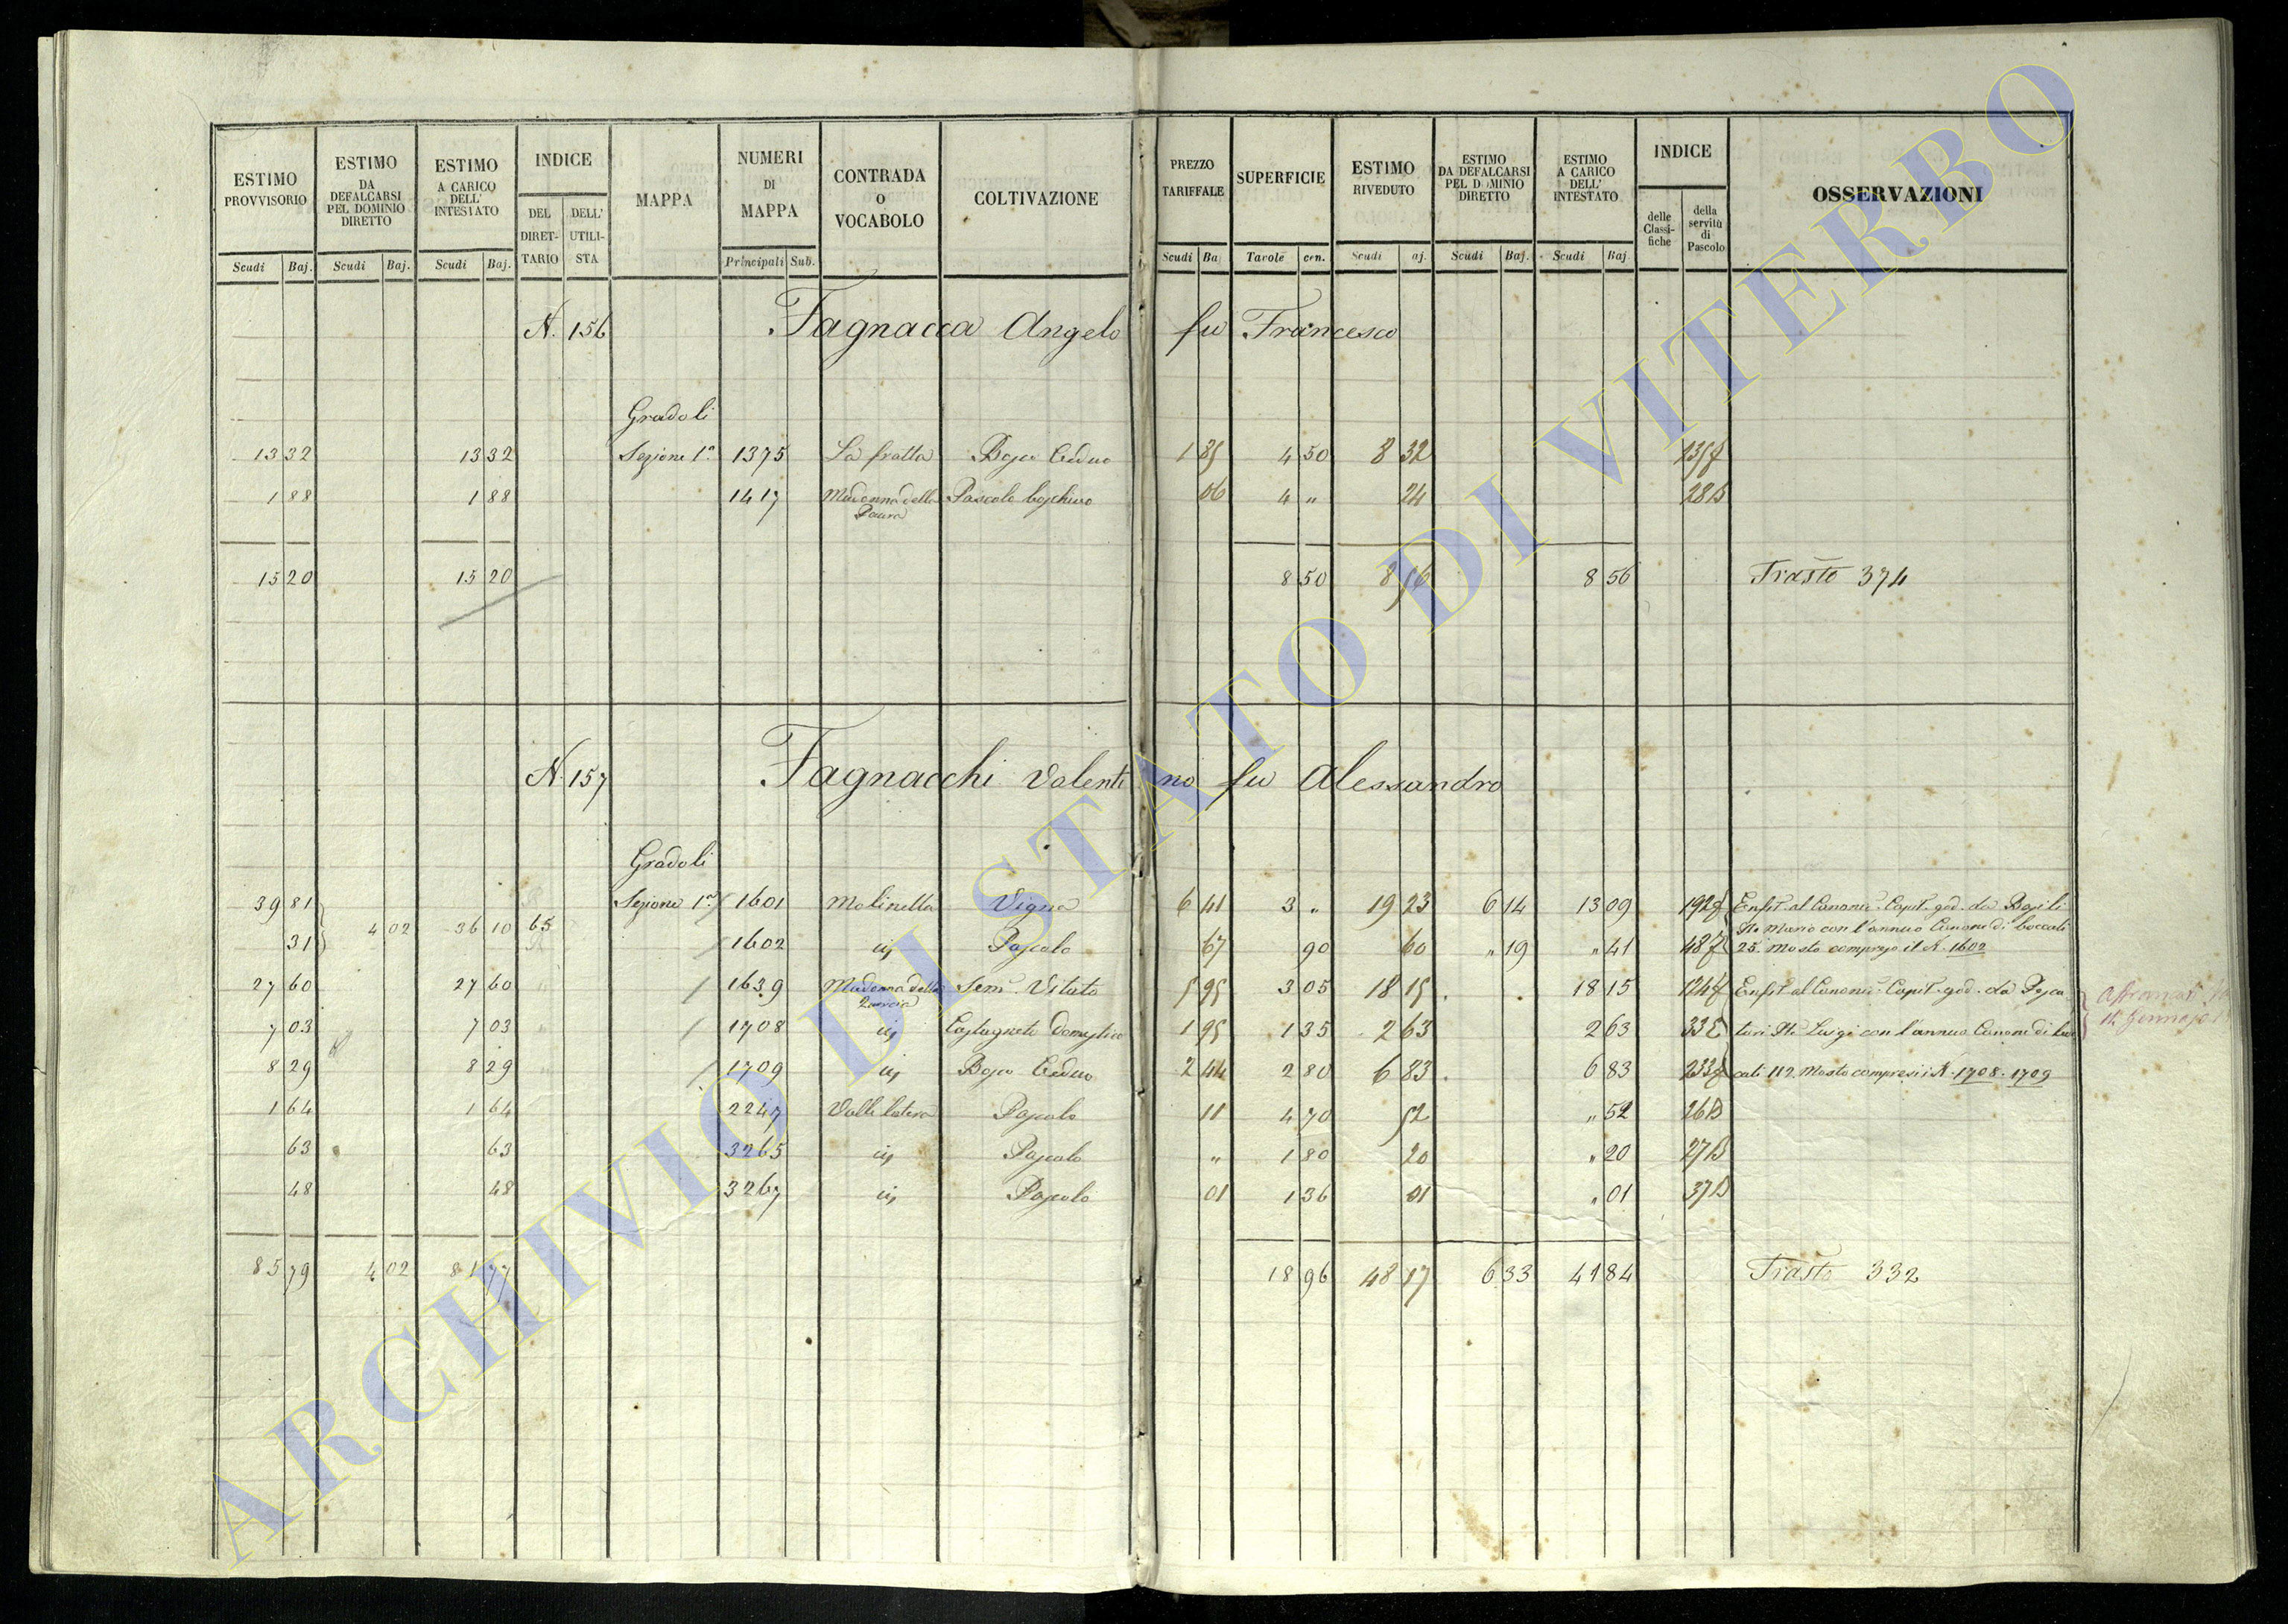 ESTIMO PROVVISORIO | ESTIMO DA DEFALCARSI PEL DOMINIO DIRETTO | ESTIMO A CARICO DELL' INTESTATO | INDICE | MAPPA | NUMERI DI MAPPA | CONTRADA O VOCABOLO | COLTIVAZIONE | PREZZO TARIFFALE | SUPERFICIE | ESTIMO RIVEDUTO | ESTIMO DA DEFALCARSI PEL DOMINIO DIRETTO | ESTIMO A CARICO DELL' INTESTATO | INDICE | OSSERVAZIONI
DEL DIRETTARIO | DELL' UTILISTA | delle Classifiche | della servitù di Pascolo
Scudi Baj. | Scudi Baj. | Scudi Baj. | Principali Sub. | Scudi Ba | Tavole cen. | Scudi aj. | Scudi Baj. | Scudi Baj.
N. 156 Fagnacca Angelo fu Francesco
Gradoli
13 32 | 13 32 | Sezione 1a | 1375 | La fratta | Bosco Ceduo | 1 85 | 4 50 | 8 32
1 88 | 1 88 | 1417 | Madonna della | Pascolo boschivo | 06 | 4 " | 24 | 28B
15 20 | 15 20 | 8 50 | 8 56 | 8 56 | Trasto 374
N. 157 Fagnacchi Valentino fu Alessandro
Gradoli
39 81 | Sezione 1a | 1601 | Molinella | Vigna | 6 41 | 3 " | 19 23 | 6 14 | 13 09 | Enfit. al Canonic. Capit. god. da
4 02 | 36 10 | 65 | Mario con l'annuo Canone di boccali
31 | 1602 | Pascolo | 67 | 90 | 60 | " 19 | " 41 | 25 Mosto compreso il N. 1602
27 60 | 27 60 | 1639 | Madonna della Quercia | Sem. Vitato | 5 95 | 3 05 | 18 15 | 18 15 | Enfit. al Canonic. Capit. god. da
7 03 | 7 03 | 1708 | Castagneto Domestico | 1 95 | 1 35 | 2 63 | 2 63 | 33E | Luigi con l'annuo Canone di
8 29 | 8 29 | 1709 | Bosco Ceduo | 2 44 | 2 80 | 6 83 | 6 83 | 112 Mosto compresi i N. 1708. 1709
1 64 | 1 64 | 2247 | Valle | Pascolo | 11 | 4 70 | 52 | " 52 | 26B
63 | 63 | 3265 | Pascolo | " | 1 80 | 20 | " 20 | 27B
48 | 48 | 3267 | Pascolo | 01 | 1 36 | 01 | " 01 | 37B
85 79 | 4 02 | 81 77 | 18 96 | 48 17 | 6 33 | 41 84 | Trasto 332
ARCHIVIO DI STATO DI VITERBO